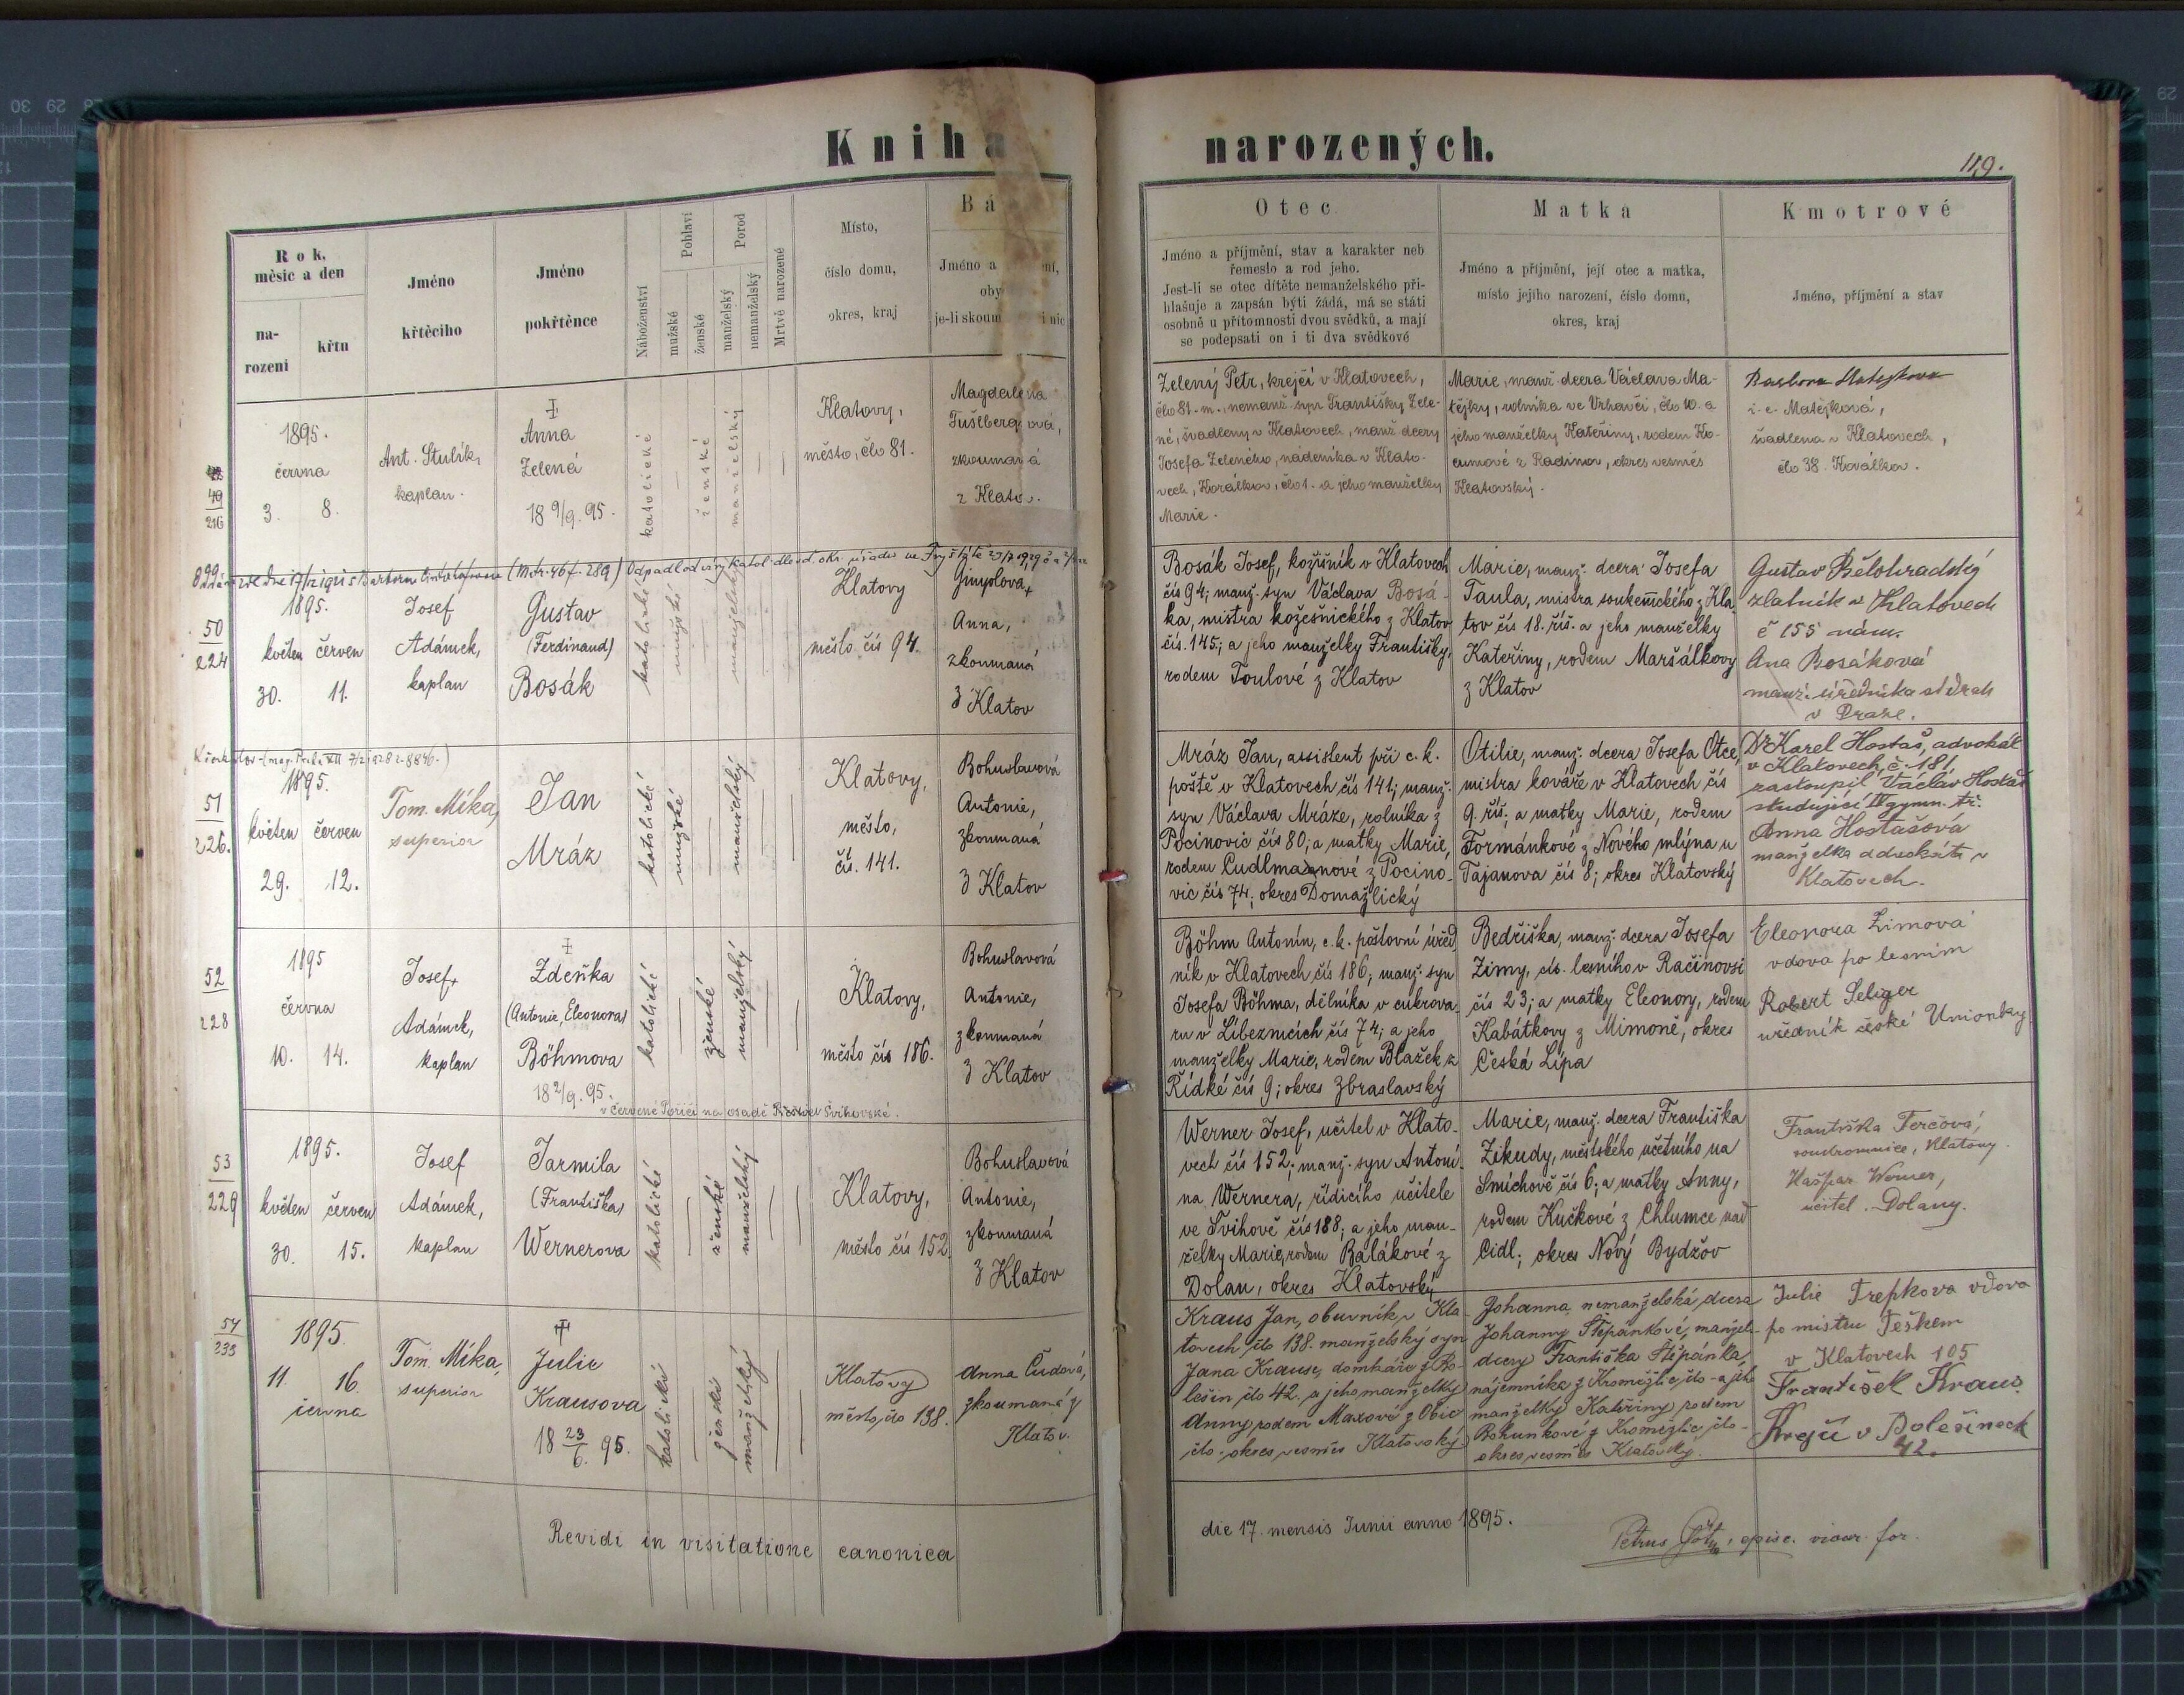 Kniha narozených.
119.
Rok, měsíc a den
na-
rození
křtu
Jméno
křtěcího
Jméno
pokřtěnce
Náboženství
Pohlaví
mužské
ženské
Porod
manželský
nemanželský
Mrtvě narozené
Místo,
číslo domu,
okres, kraj
Bá
Jméno a
oby
je-li skoum
Otec
Jméno a příjmění, stav a karakter neb
řemeslo a rod jeho.
Jest-li se otec dítěte nemanželského při-
hlašuje a zapsán býti žádá, má se státi
osobně u přítomnosti dvou svědků, a mají
se podepsati on i ti dva svědkové
Matka
Jméno a příjmění, její otec a matka,
místo jejího narození, číslo domu,
okres, kraj
Kmotrové
Jméno, příjmění a stav
49
216
1895.
června
3. 8.
Ant. Stulík,
kaplan.
Anna
Zelená
18 9/9. 95.
katolické
ženské
manželský
Klatovy,
město, čło 81.
Magdalena
zkoumaná
z Klatov.
Zelený Petr, krejčí v Klatovech,
čło 81. m., nemanž. syn Františky Zele-
né, švadleny v Klatovech, manž. dcery
Josefa Zeleného, nádeníka v Klato-
vech, Korálkov, čło 1. a jeho manželky
Marie.
Marie, manž. dcera Václava Ma-
tějky, rolníka ve Vrhavči, čło 10. a
jeho manželky Kateřiny, rodem Ko-
z Radinov, okres vesměs
Klatovský.
i. e. Matějková,
švadlena v Klatovech,
čło 38.
50
224
1895.
květen červen
30. 11.
Josef
Adámek,
kaplan
Gustav
(Ferdinand)
Bosák
katolické
mužské
manželský
Klatovy
město čís 94.
Gimplová,
Anna,
zkoumaná
z Klatov
Bosák Josef, kožišník v Klatovech
čís 94; manž. syn Václava Bosá-
ka, mistra kožešnického z Klatov
čís. 145; a jeho manželky Františky,
rodem Toulové z Klatov
Marie, manž. dcera Josefa
Taula, mistra soukenického z Kla
tov čís 18. říš. a jeho manželky
Kateřiny, rodem Maršálkovy
z Klatov
Gustav Bělohradský
zlatník v Klatovech
č 155 nám.
Ana Bosáková
manž. úředníka
v Praze.
51
226.
1895.
květen červen
29. 12.
Tom. Míka,
superior
Jan
Mráz
katolické
mužské
manželský
Klatovy,
město,
čís. 141.
Bohuslavová
Antonie,
zkoumaná
z Klatov
Mráz Jan, assistent při c. k.
poště v Klatovech čís 141; manž.
syn Václava Mráze, rolníka z
Pocinovic čís 80; a matky Marie,
rodem Cudlmanové z Pocino-
vic čís 74; okres Domažlický
Otilie, manž. dcera Josefa Otce,
mistra kováře v Klatovech čís
9. říš.; a matky Marie, rodem
Formánkové z Nového mlýna u
Tajanova čís 8; okres Klatovský
Dr Karel Hostaš, advokát
v Klatovech, č. 181,
zastoupil Václav Hostaš
studující IV gymn. tř.
Anna Hostašová
manželka advokáta v
Klatovech.
52
228
1895
června
10. 14.
Josef
Adámek,
kaplan
Zdeňka
(Antonie, Eleonora)
Böhmova
18 2/9. 95.
katolické
ženské
manželský
Klatovy,
město čís 186.
Bohuslavová
Antonie,
zkoumaná
z Klatov
Böhm Antonín, c. k. poštovní úřed
ník v Klatovech čís 186; manž. syn
Josefa Böhma, dělníka v cukrova-
ru v Líbeznicích čís 74; a jeho
manželky Marie, rodem Blažek z
Řídké čís 9; okres Zbraslavský
Bedřiška, manž. dcera Josefa
Zimy, cís. lesního v Račinovsi
čís 23; a matky Eleonory, rodem
Kabátkovy z Mimoně, okres
Česká Lípa
Eleonora Zimová
vdova po lesním
Robert Seliger
úředník české Unionbky
v Červené Poříčí na osadě Švihovské.
53
229
1895.
květen červen
30. 15.
Josef
Adámek,
kaplan
Jarmila
(Františka)
Wernerova
katolické
ženské
manželský
Klatovy,
město čís 152.
Bohuslavová
Antonie,
zkoumaná
z Klatov
Werner Josef, učitel v Klato-
vech čís 152; manž. syn Antoní-
na Wernera, řídicího učitele
ve Švihově čís 188; a jeho man-
želky Marie, rodem Balákové z
Dolan, okres Klatovský
Marie, manž. dcera Františka
Zikudy, městského účetního na
Smíchově čís 6; a matky Anny,
rodem Kučkové z Chlumce nad
Cidl.; okres Nový Bydžov
Františka Ferčová,
soukromnice, Klatovy.
Kašpar Werner,
učitel. Dolany.
54
233
1895.
11. 16.
června
Tom. Míka,
superior
Julie
Krausova
18 23/6. 95.
katolické
ženské
manželský
Klatovy
město, čło 138.
Anna Čudová,
zkoumaná z
Klatov.
Kraus Jan, obuvník v Kla-
tovech čło 138. manželský syn
Jana Krause, domkáře z Bo-
lešin čło 42. a jeho manželky
Anny rodem Maxové z Obic
čło-; okres vesměs Klatovský
Johanna, nemanželská dcera
Johanny Štěpánkové, manžel-
dcery Františka Štěpánka,
nájemníka z Kroměždic, čło- a jeho
manželky Kateřiny rodem
Bohunkové z Kroměždic, čło-
okres vesměs Klatovský.
Julie Trepkova vdova
po mistru
v Klatovech 105
František Kraus.
Krejčí v Bolešinech
42.
Revidi in visitatione canonica die 17. mensis Junii anno 1895.
Petrus episc. vicar. for.